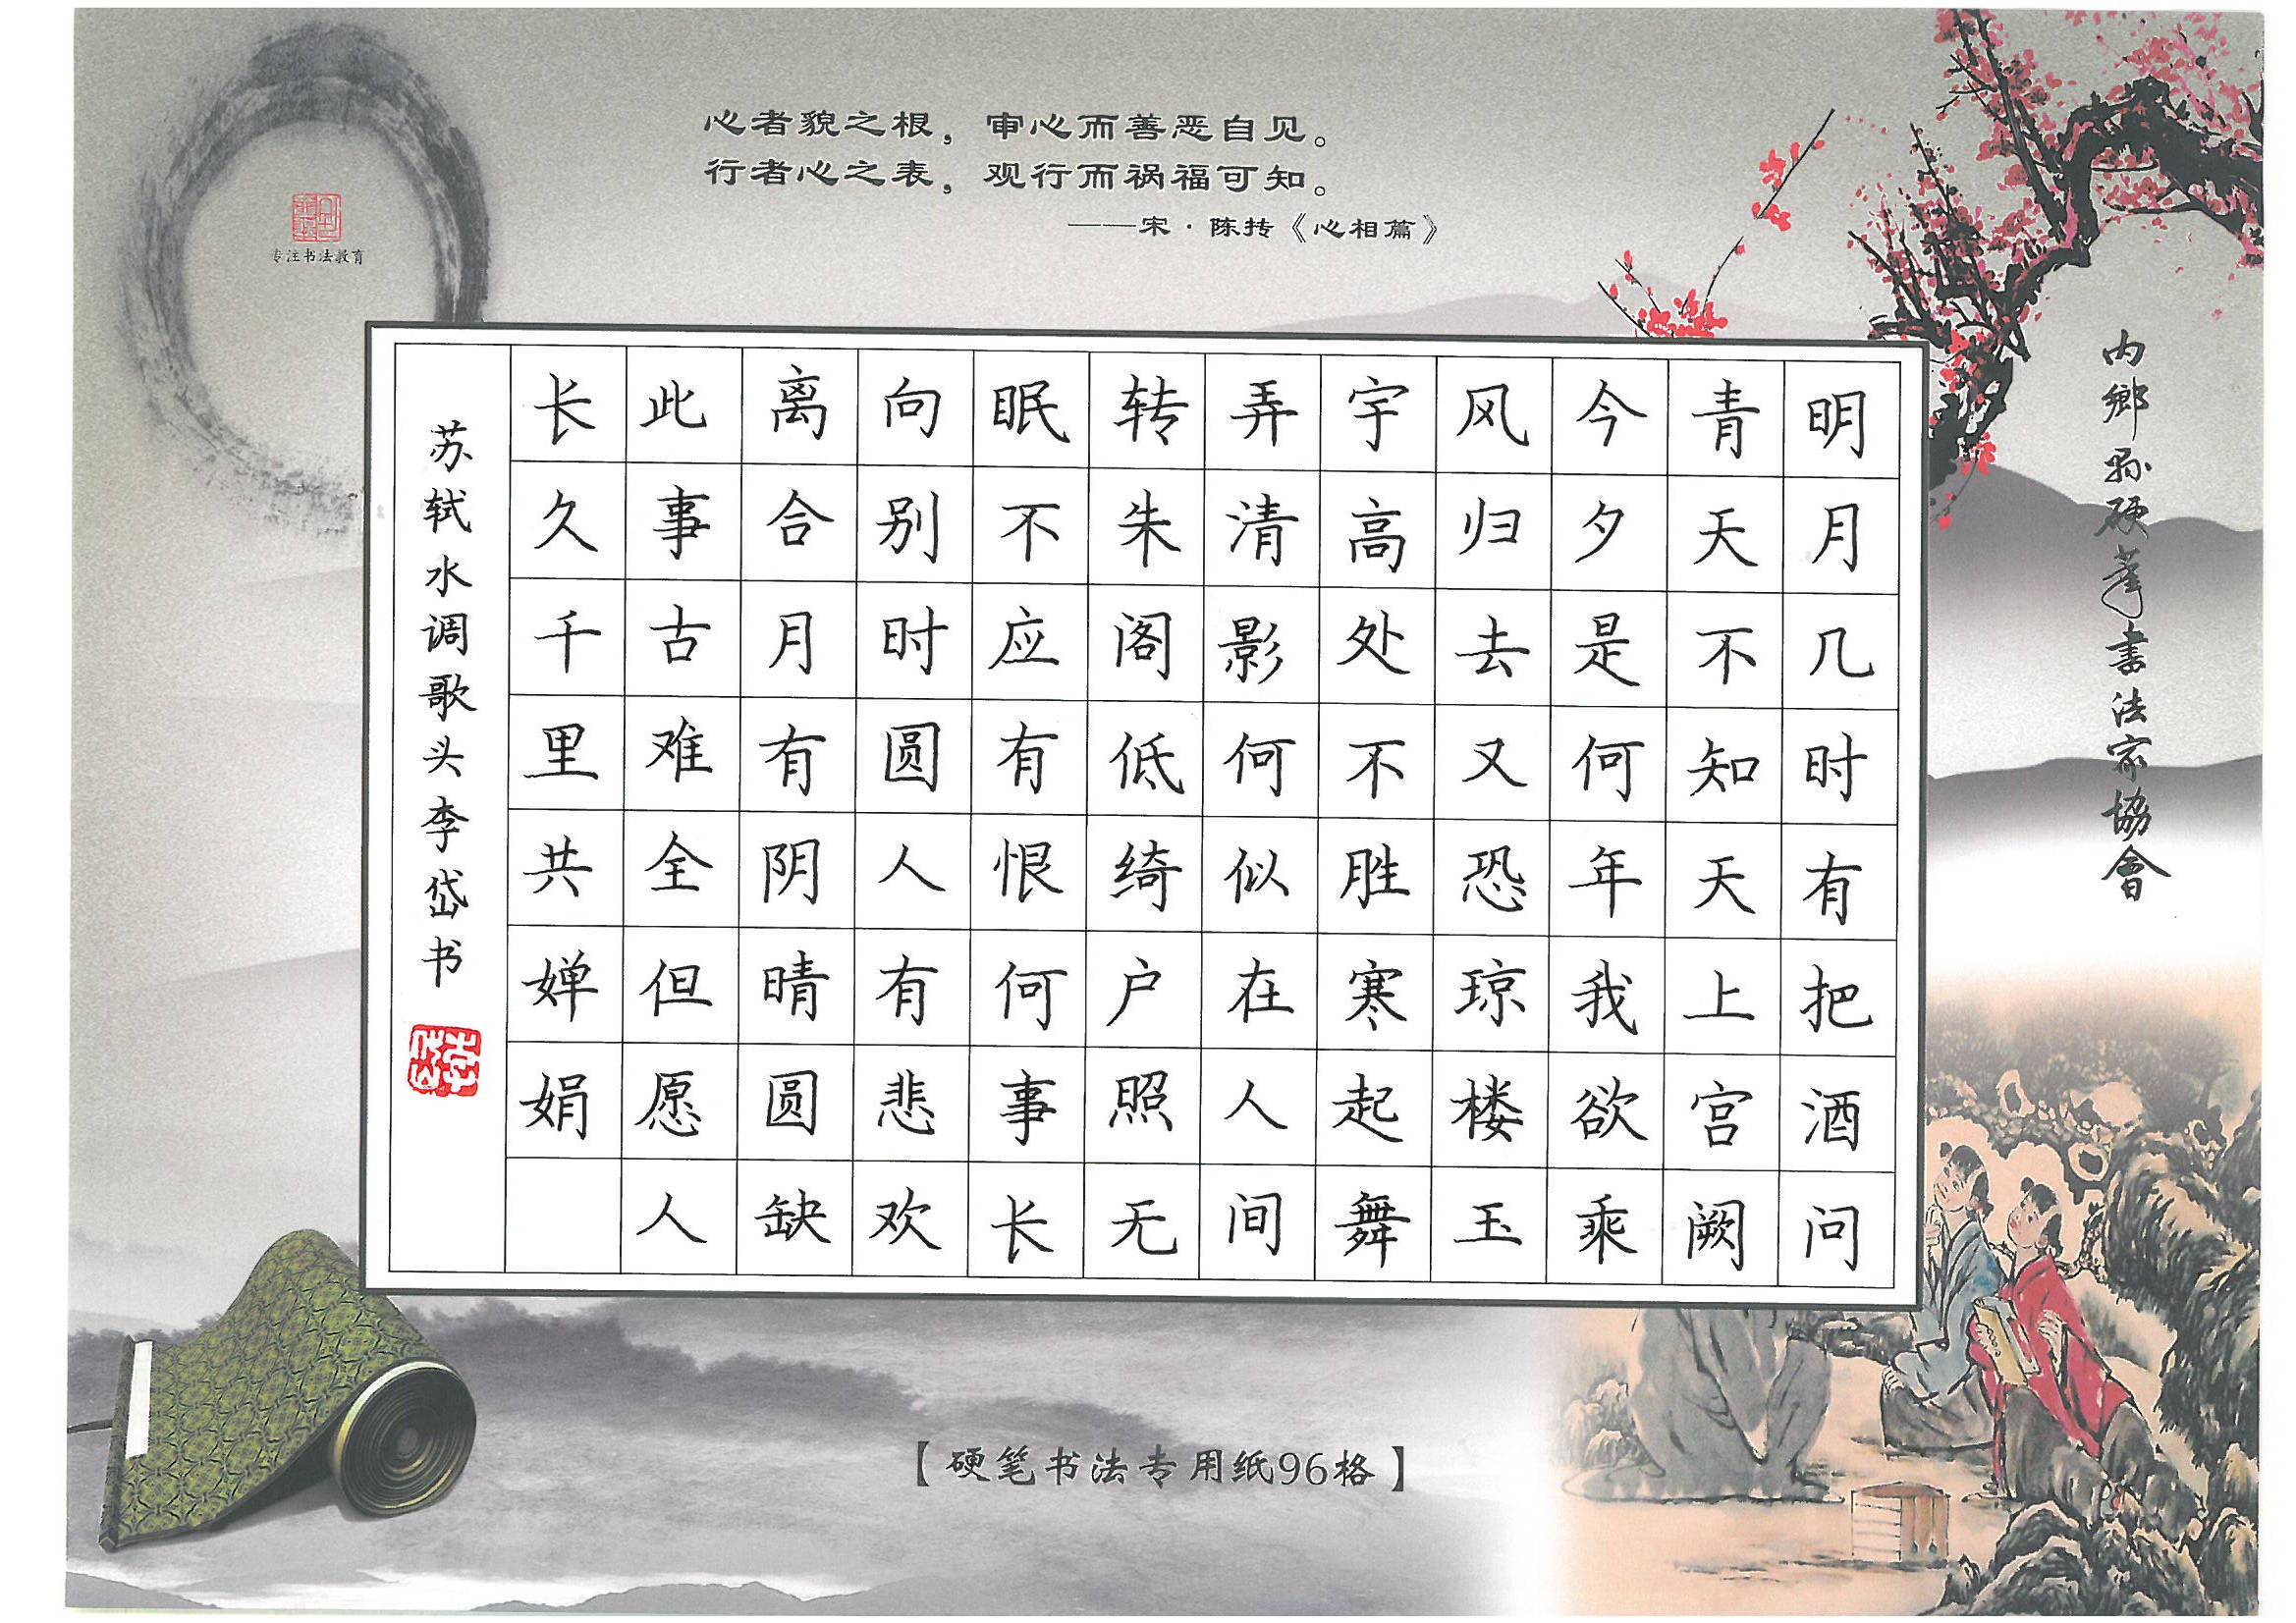 心者貌之根，审心而善恶自见。
行者心之表，观行而祸福可知。
——宋·陈抟《心相篇》
专注书法教育
内鄉縣硬筆書法家協會
明月几时有把酒问
青天不知天上宫阙
今夕是何年我欲乘
风归去又恐琼楼玉
宇高处不胜寒起舞
弄清影何似在人间
转朱阁低绮户照无
眠不应有恨何事长
向别时圆人有悲欢
离合月有阴晴圆缺
此事古难全但愿人
长久千里共婵娟
苏轼水调歌头李岱书
【硬笔书法专用纸96格】